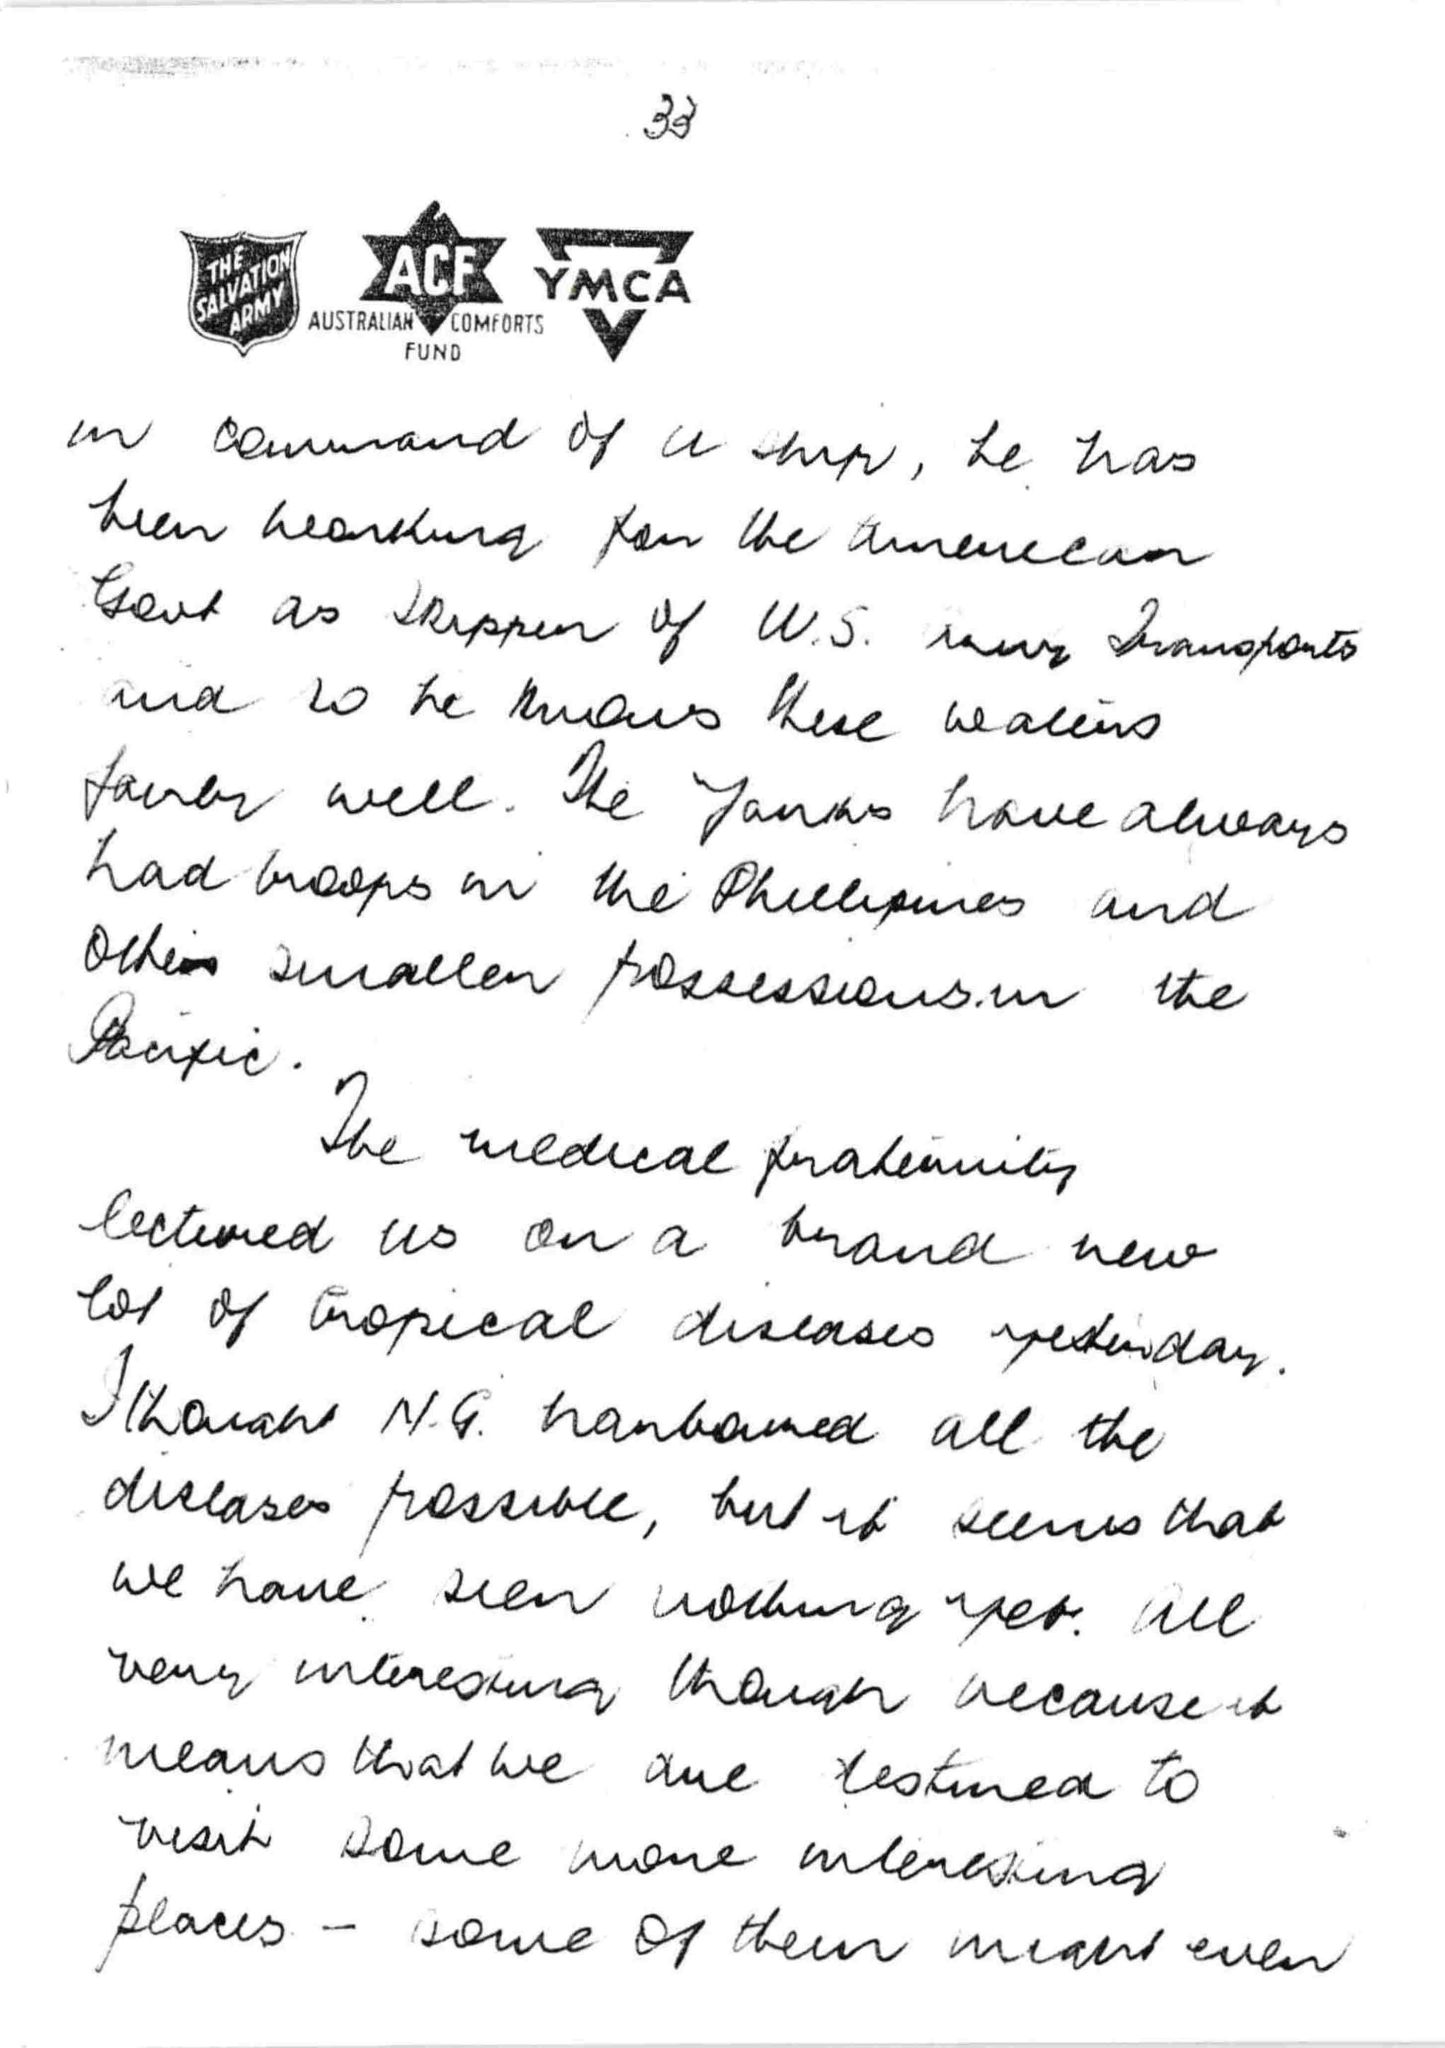 33
THE
SALVATION
ARMY
ACF
AUSTRALIAN COMFORTS
FUND
YMCA
in command of a ship, he has
been working for the American
Govt as skipper of U.S. Army Transports
and so he knows these waters
fairly well. The Yanks have always
had troops in the Phillipines and
other smaller possessions in the
Pacific.
The medical fraternity
lectured us on a brand new
lot of tropical diseases yesterday.
I thought N.G. harboured all the
diseases possible, but it seems that
we have seen nothing yet. All
very interesting though because it
means that we are destined to
visit some more interesting
places - some of them might even